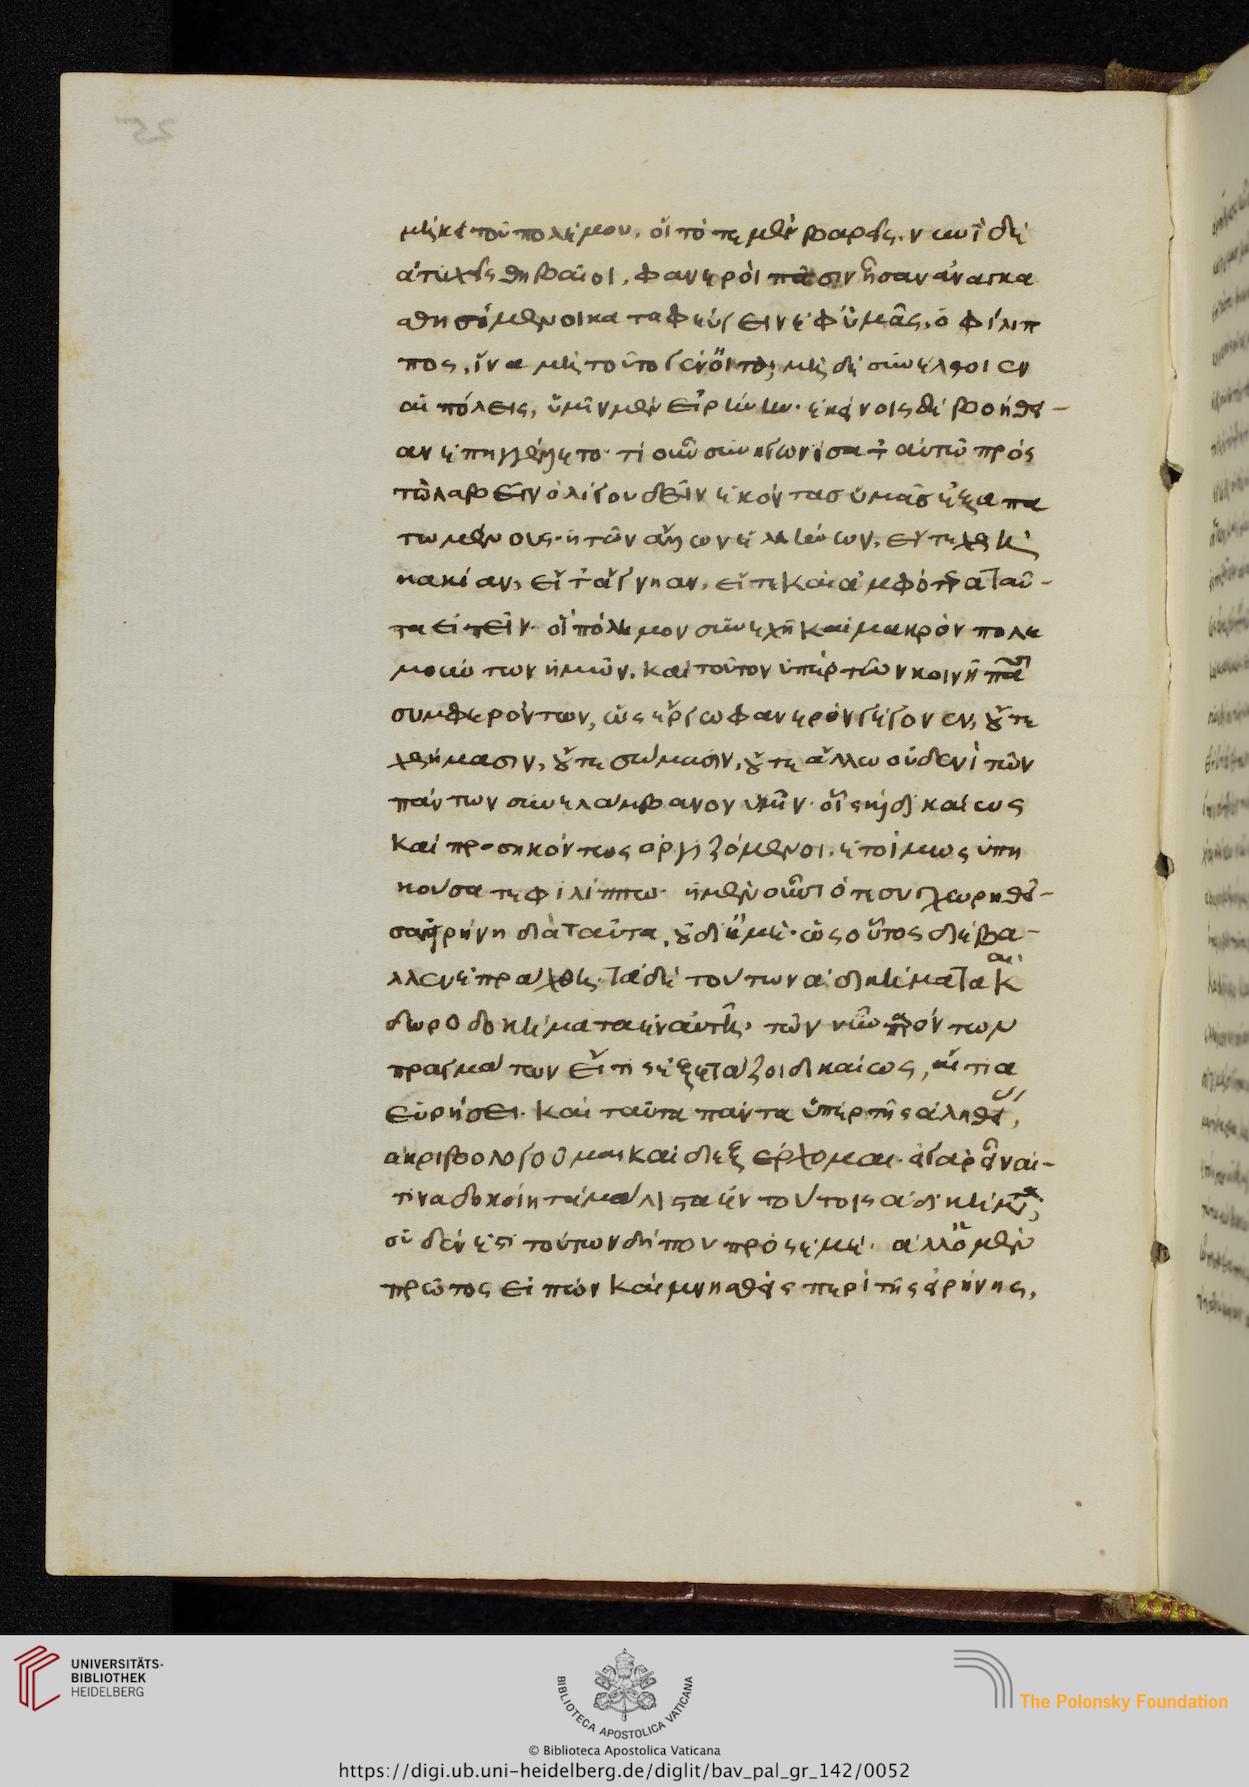 μήκει τοῦ πολέμου, οἱ τότε μὲν βαρεῖς, νυνὶ δὲ
ἀτυχεῖς θηβαῖοι, φανεροὶ πᾶσιν ἦσαν ἀναγκα
σθησόμενοι καταφεύγειν ἐφ' ὑμᾶς, ὁ φίλιπ
πος, ἵνα μὴ τοῦτο γένοιτο, μηδὲ συνέλθοιεν
αἱ πόλεις, ὑμῖν μὲν εἰρήνην, ἐκείνοις δὲ βοήθει-
αν ἐπηγγείλετο· τί οὖν συνηγωνίσατο αὐτῶ πρὸς
τὸ λαβεῖν ὀλίγου δεῖν ἑκόντας ὑμᾶς ἐξαπα
τωμένους· ἡ τῶν ἄλλων ἑλλήνων, εἴτε χρὴ
κακίαν, εἴτ' ἄγνοιαν, εἴτε καὶ ἀμφότερα ταῦ-
τα εἰπεῖν· οἳ πόλεμον συνεχῆ καὶ μακρὸν πολε
μούντων ἡμῶν, καὶ τοῦτον ὑπὲρ τῶν κοινῆ πᾶσι
συμφερόντων, ὡς ἔργω φανερὸν γέγονεν, οὔτε
χρήμασιν, οὔτε σώμασιν, οὔτε ἄλλω οὐδενὶ τῶν
πάντων συνελάμβανον ὑμῖν· οἷς καὶ δικαίως
καὶ προσηκόντως ὀργιζόμενοι, ἑτοίμως ὑπη
κούσατε φιλίππω· ἡ μὲν οὖν τότε συγχωρηθεῖ-
σα εἰρήνη διὰ ταῦτα, οὐ δι' ἐμέ· ὡς οὗτος διέβα-
λλεν ἐπράχθη· τὰ δὲ τούτων ἀδικήματα καὶ
δωροδοκήματα ἐν αὐτῆ, τῶν νῦν παρόντων
πραγμάτων εἴ τις ἐξετάζοι δικαίως, αἴτια
εὑρήσει· καὶ ταῦτα πάντα ὑπὲρ τῆς ἀληθείας,
ἀκριβολογοῦμαι καὶ διεξέρχομαι· εἰ γὰρ εἶναί
τινα δοκοίη τὰ μάλιστα ἐν τούτοις ἀδικήματα,
οὐδέν ἐστι τούτων δήπου πρὸς ἐμέ· ἀλλ' ὁ μὲν
πρῶτος εἰπὼν καὶ μνησθεὶς περὶ τῆς εἰρήνης,
UNIVERSITÄTS-
BIBLIOTHEK
HEIDELBERG
BIBLIOTECA APOSTOLICA VATICANA
The Polonsky Foundation
© Biblioteca Apostolica Vaticana
https://digi.ub.uni-heidelberg.de/diglit/bav_pal_gr_142/0052